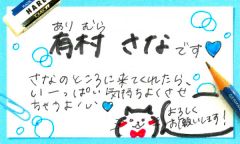 ありむら
有村 さなです
さなのところに来てくれたら、
い〜っぱい気持ちよくさせ
ちゃうよ〜い
よろしく
お願いします!